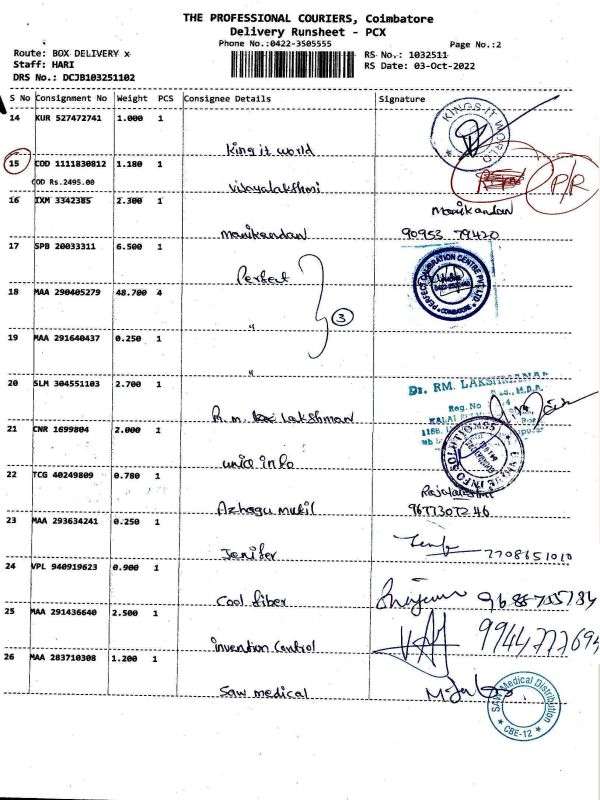 THE PROFESSIONAL COURIERS, Coimbatore
Delivery Runsheet - PCX
Phone No.:0422-3505555 Page No.:2
Route: BOX DELIVERY x RS No.: 1032511
Staff: HARI RS Date: 03-Oct-2022
DRS No.: DCJB103251102
S No Consignment No Weight PCS Consignee Details Signature
14 KUR 527472741 1.000 1
King it world KINGS IT WORLD
15 COD 1111830812 1.180 1
COD Rs.2495.00 P/R
Vijayalakshmi
16 IXM 3342385 2.300 1 Manikandan
manikandan 90953 79420
17 SPB 20033311 6.500 1
Perfect PERFECT CALIBRATION CENTRE PVT LTD COIMBATORE
18 MAA 290405279 48.700 4
" 3
19 MAA 291640437 0.250 1
"
20 SLM 304551103 2.700 1 Dr. RM. LAKSHMANAN
Reg. No
R.m. Lakshman
21 CNR 1699804 2.000 1
uniq info INFOSOLUTIONS
22 TCG 40249809 0.780 1
Azhagu mukil 9677307246
23 MAA 293634241 0.250 1
Jenifer 7708651010
24 VPL 940919623 0.900 1
Cool fiber
25 MAA 291436640 2.500 1
invention Control
26 MAA 283710308 1.200 1
Saw medical SAW Medical Distribution CBE-12